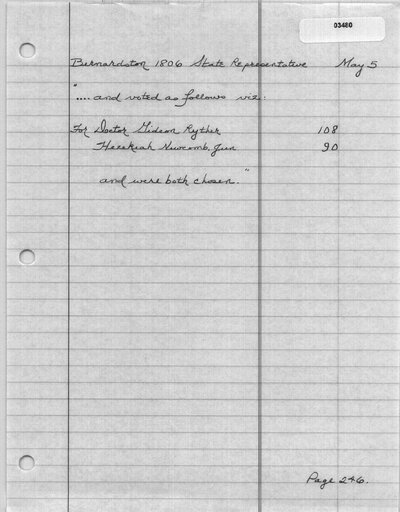 03480
Bernardston 1806 State Representative May 5
"
.... and voted as follows viz:
For Doctor Gideon Ryther 108
Hezekiah Newcomb Jun 90
and were both chosen."
Page 246.